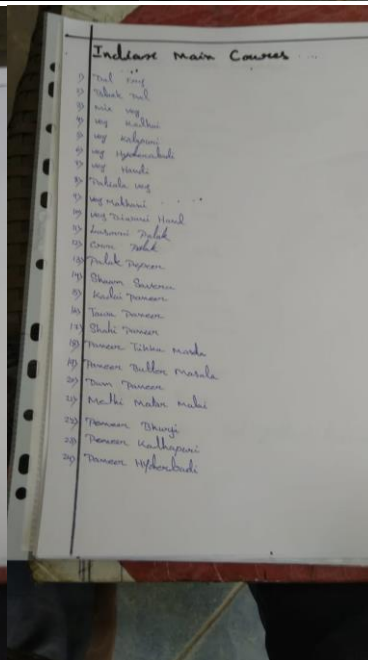 Indian Main Courses
1) Dal Fry
2) Palak Dal
3) mix veg
4) veg Kadhai
5) veg Kalyani
6) veg Hyderabadi
7) veg Handi
8) Patiala veg
9) veg Makhani
10) veg Diwani Hand
11) Lasuni Palak
12) Corn Palak
13) Palak Paneer
14) Shaam Savera
15) Kadai Paneer
16) Tawa Paneer
17) Shahi Paneer
18) Paneer Tikka Masala
19) Paneer Butter Masala
20) Dum Paneer
21) Methi Matar Malai
22) Paneer Bhurji
23) Paneer Kolhapuri
24) Paneer Hyderbadi